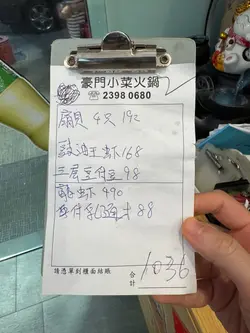 豪門小菜火鍋
☏2398 0680
扇貝 4只 192
豉油王虾 168
三層豆付 98
龍虾 490
88
請憑單到櫃面結賬
合計 1036